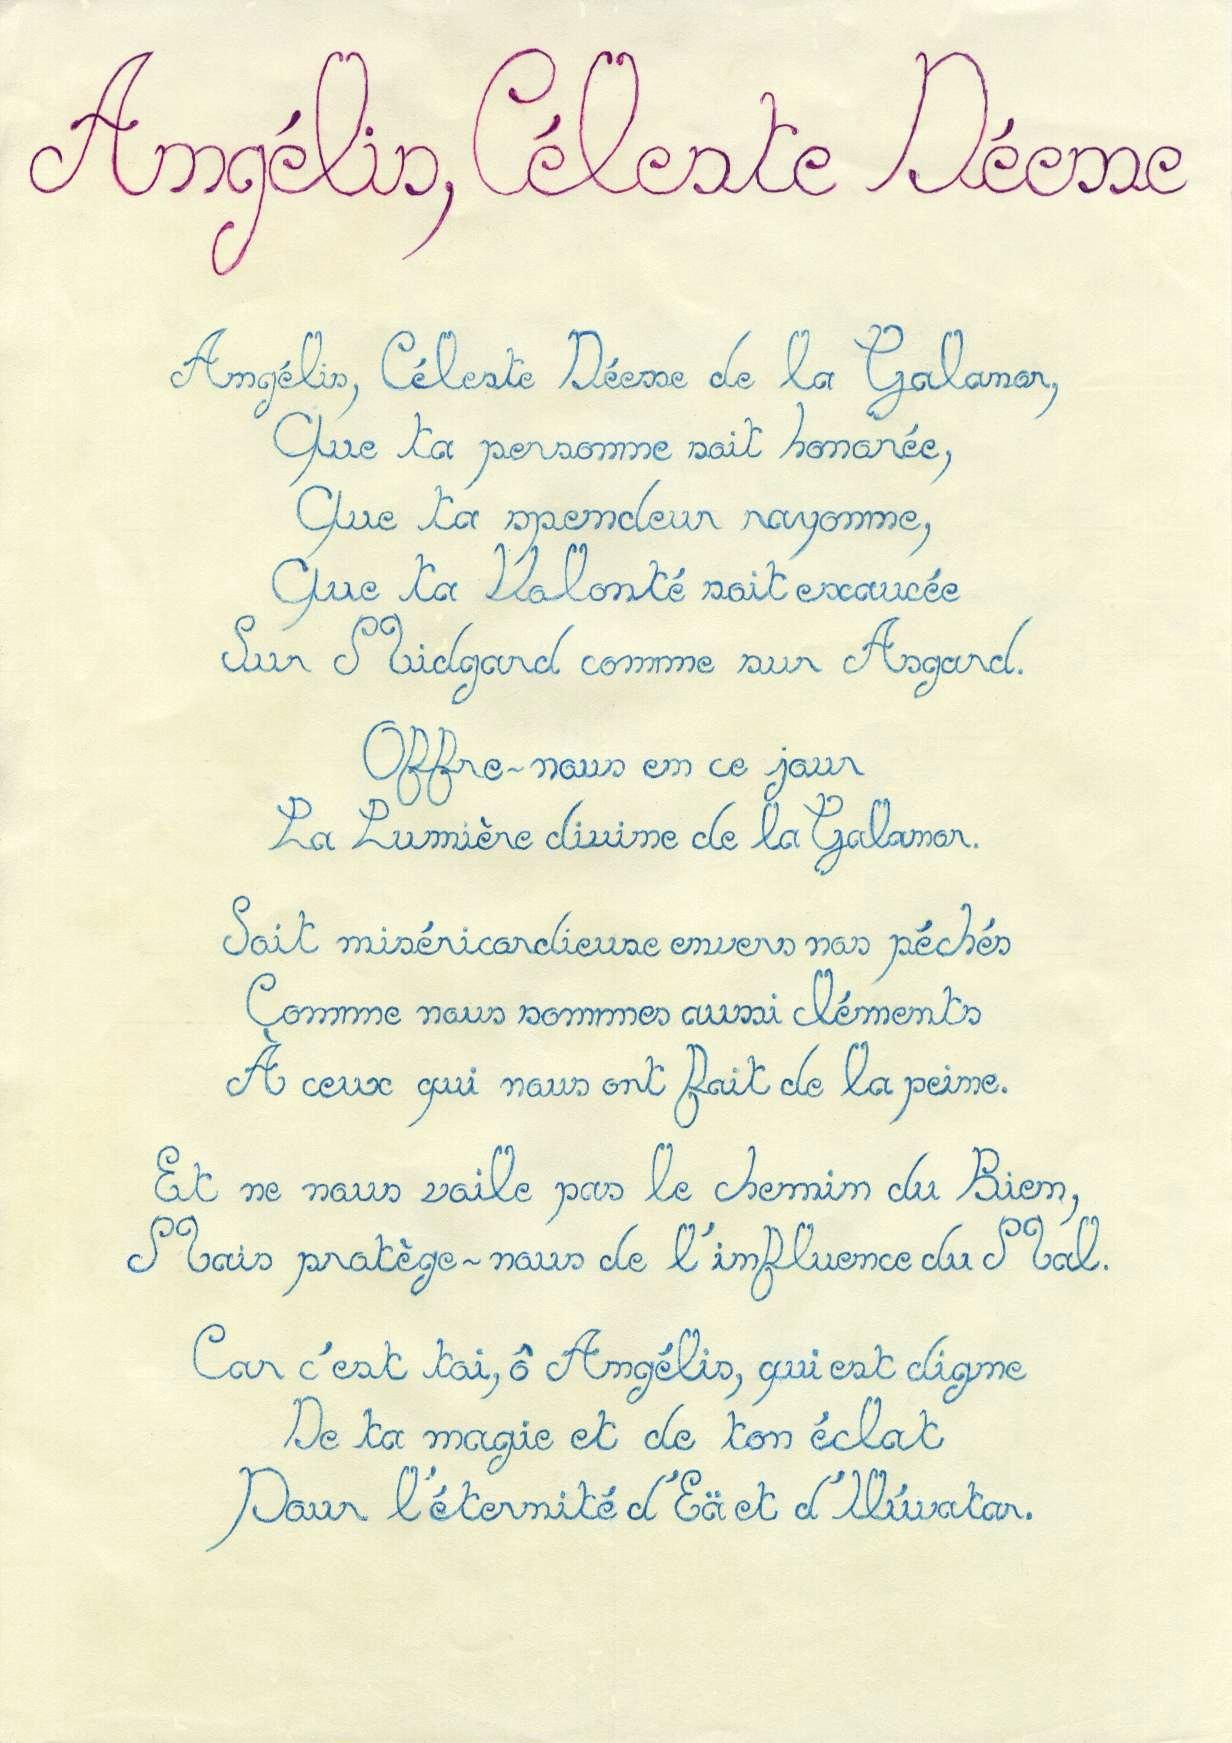 Angélis, Céleste Déesse
Angélis, Céleste Déesse de la Galanor,
Que ta personne soit honorée,
Que ta spendeur rayonne,
Que ta Volonté soit exaucée
Sur Midgard comme sur Asgard.
Offre-nous en ce jour
La Lumière divine de la Galanor.
Soit miséricordieuse envers nos péchés
Comme nous sommes aussi cléments
À ceux qui nous ont fait de la peine.
Et ne nous voile pas le chemin du Bien,
Mais protège-nous de l'influence du Mal.
Car c'est toi, ô Angélis, qui est digne
De ta magie et de ton éclat
Pour l'éternité d'Eä et d'Ilúvatar.